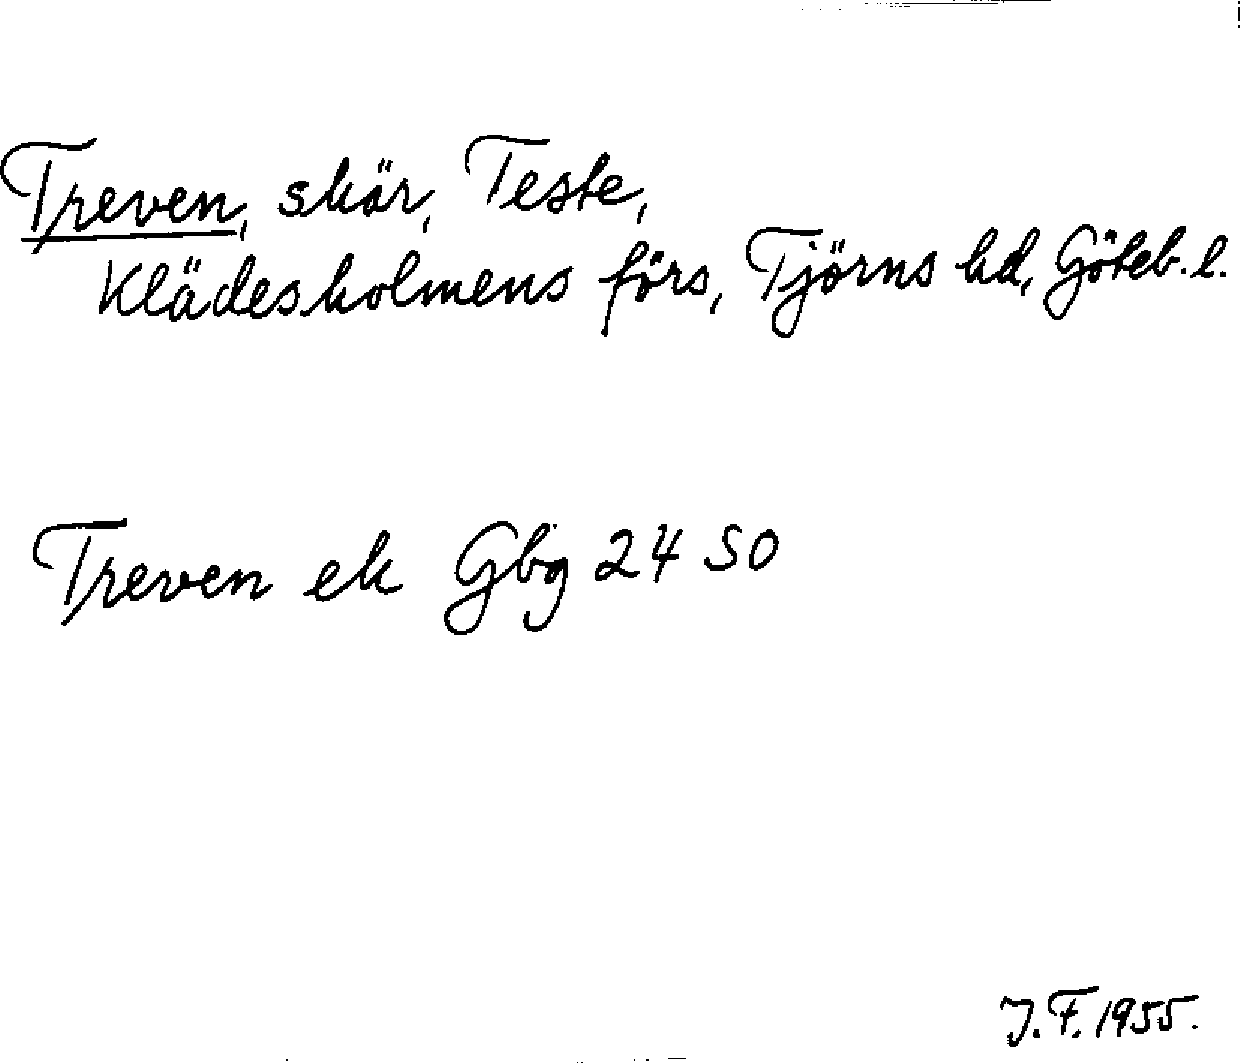 Treven, skär, Teste,
Klädesholmens förs, Tjörns hd, Göteb. l.
Treven ek Gbg 24 SO
J. F. 1955.